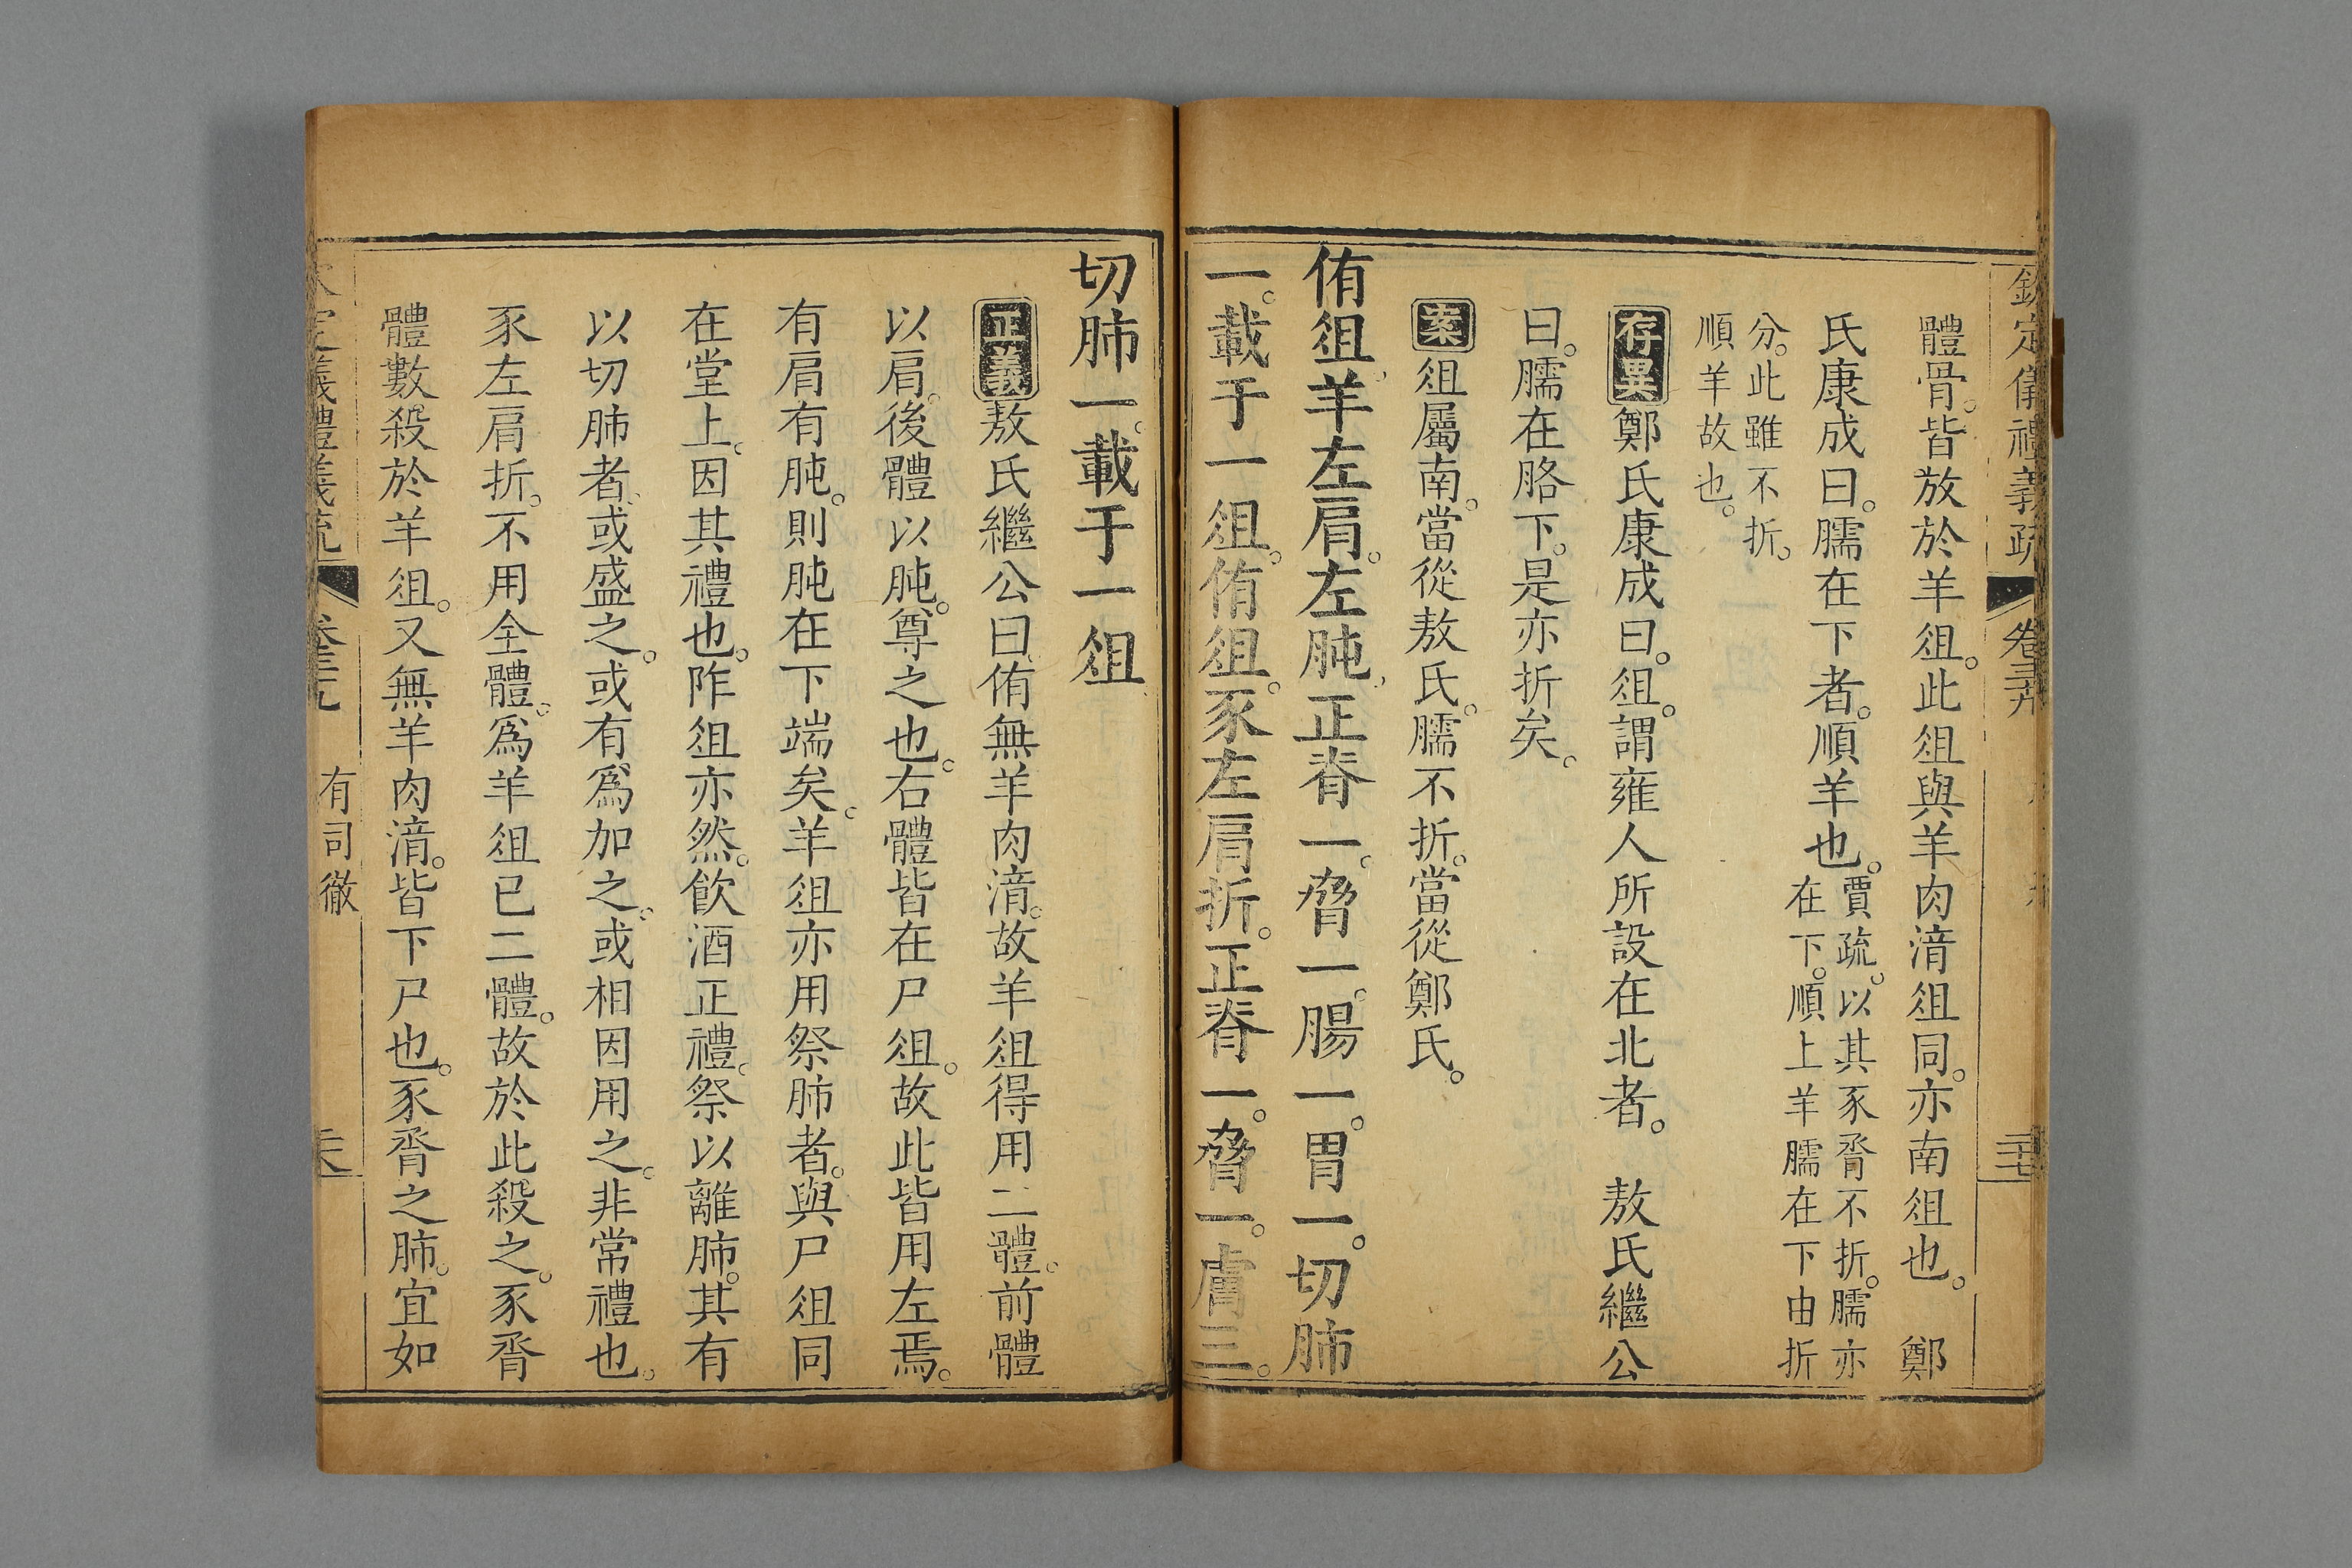 欽定儀禮義疏 卷三十九
體骨。皆放於羊俎。此俎與羊肉湇俎同。亦南俎也。 鄭
氏康成曰。臑在下者。順羊也。賈疏。以其豕脀不折。臑亦
在下。順上羊臑在下由折
分。此雖不折。
順羊故也。
存異鄭氏康成曰。俎。謂雍人所設在北者。 敖氏繼公
曰。臑在胳下。是亦折矣。
案俎屬南。當從敖氏。臑不折。當從鄭氏。
侑俎。羊左肩。左肫。正脊一。脅一。腸一。胃一。切肺
一。載于一俎。侑俎。豕左肩折。正脊一。脅一。膚三。
切肺一。載于一俎
正義敖氏繼公曰。侑無羊肉湇。故羊俎得用二體。前體
以肩。後體以肫。尊之也。右體皆在尸俎。故此皆用左焉。
有肩有肫。則肫在下端矣。羊俎亦用祭肺者。與尸俎同
在堂上。因其禮也。阼俎亦然。飲酒正禮。祭以離肺。其有
以切肺者。或盛之。或有爲加之。或相因用之。非常禮也。
豕左肩折。不用全體。爲羊俎已二體。故於此殺之。豕脀
體數。殺於羊俎。又無羊肉湇。皆下尸也。豕脀之肺。宜如
義禮義疏 卷三十九 有司徹